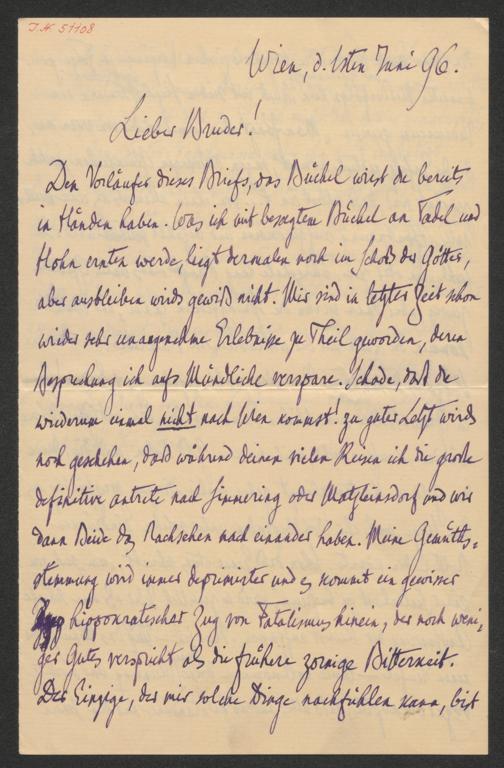 I.N. 51108
Wien, d. 1sten Juni 96.
Lieber Bruder!
Den Vorläufer dieses Briefs, das Büchel wirst du bereits
in Händen haben. Was ich mit besagtem Büchel an Tadel und
Hohn ernten werde, liegt dermalen noch im Schoß der Götter,
aber ausbleiben wirds gewiß nicht. Mir sind in letzter Zeit schon
wieder sehr unangenehme Erlebnisse zu Theil geworden, deren
Besprechung ich aufs Mündliche verspare. Schade, daß du
wiederum einmal nicht nach Wien kommst! Zu guter Letzt wirds
noch geschehen, daß während deiner vielen Reisen ich die große
definitive antrete nach Simmering oder Matzleinsdorf und wir
dann Beide das Nachsehen nach einander haben. Meine Gemüths=
stimmung wird immer deprimirter und es kommt ein gewisser
hippokratischer Zug von Fatalismus hinein, der noch weni-
ger Gutes verspricht als die frühere zornige Bitterkeit.
Der Einzige, der mir solche Dinge nachfühlen kann, bist